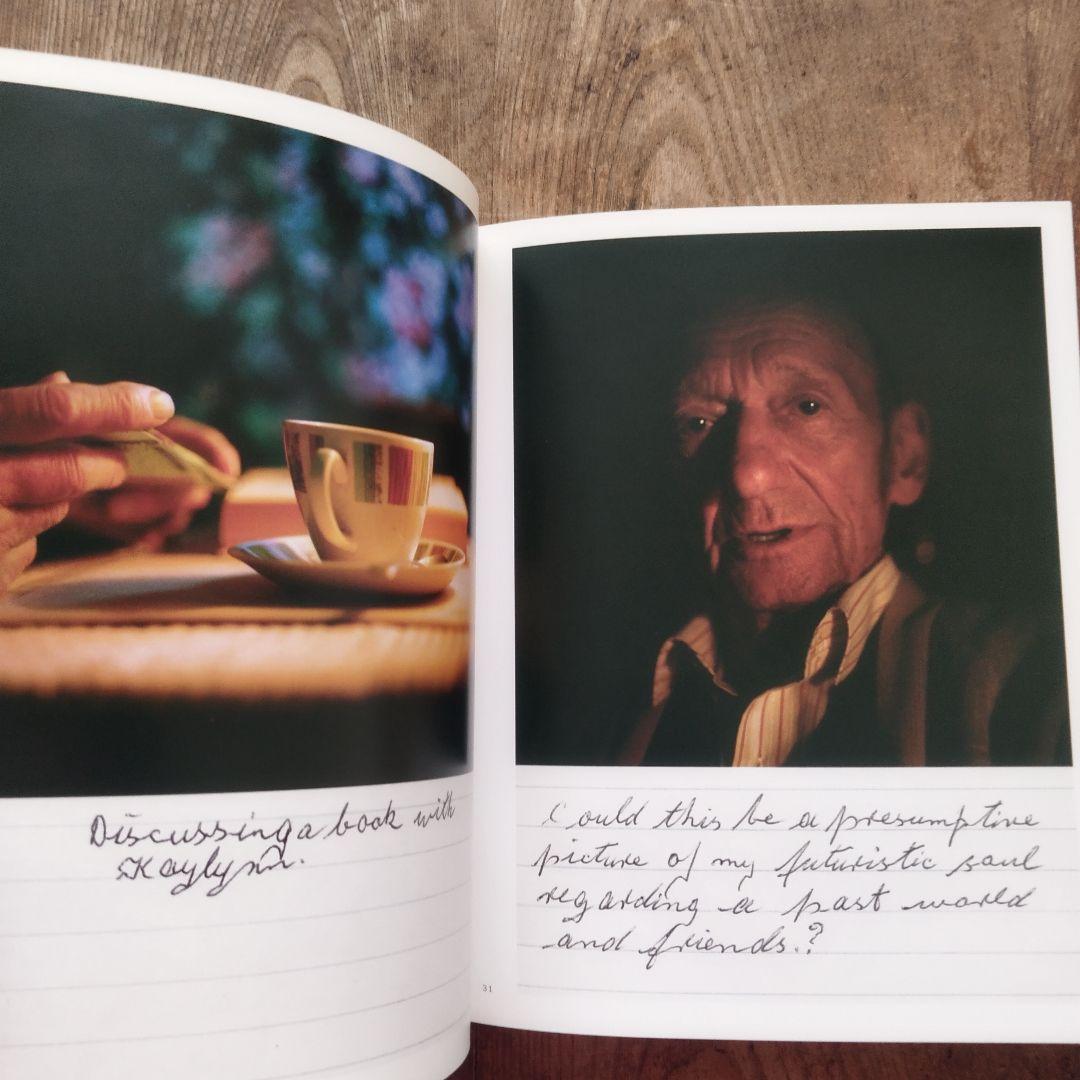 Discussing a book with
Kaylynn.
Could this be a presumptive
picture of my futuristic soul
regarding a past world
and friends.?
31